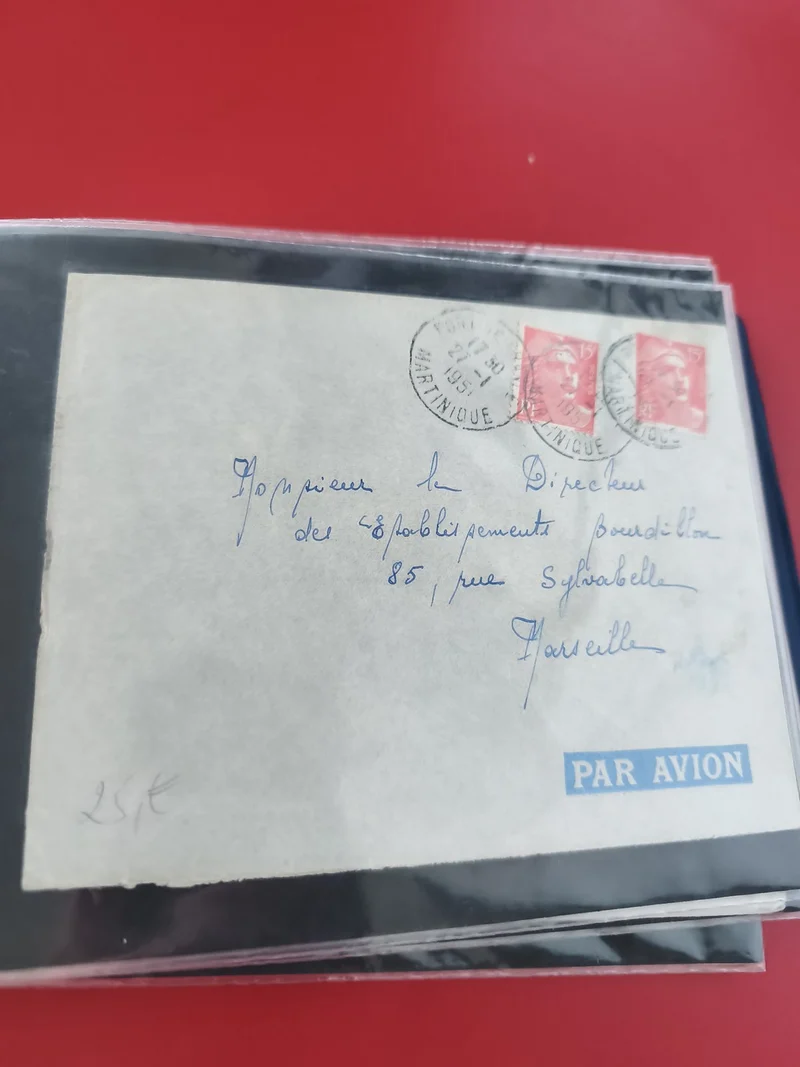 17 30
27 -1
1951
MARTINIQUE
15
15
MARTINIQUE
MARTINIQUE
Monsieur le Directeur
des Etablissements Bourdillon
85, rue Sylvabelle
Marseille
PAR AVION
25,€